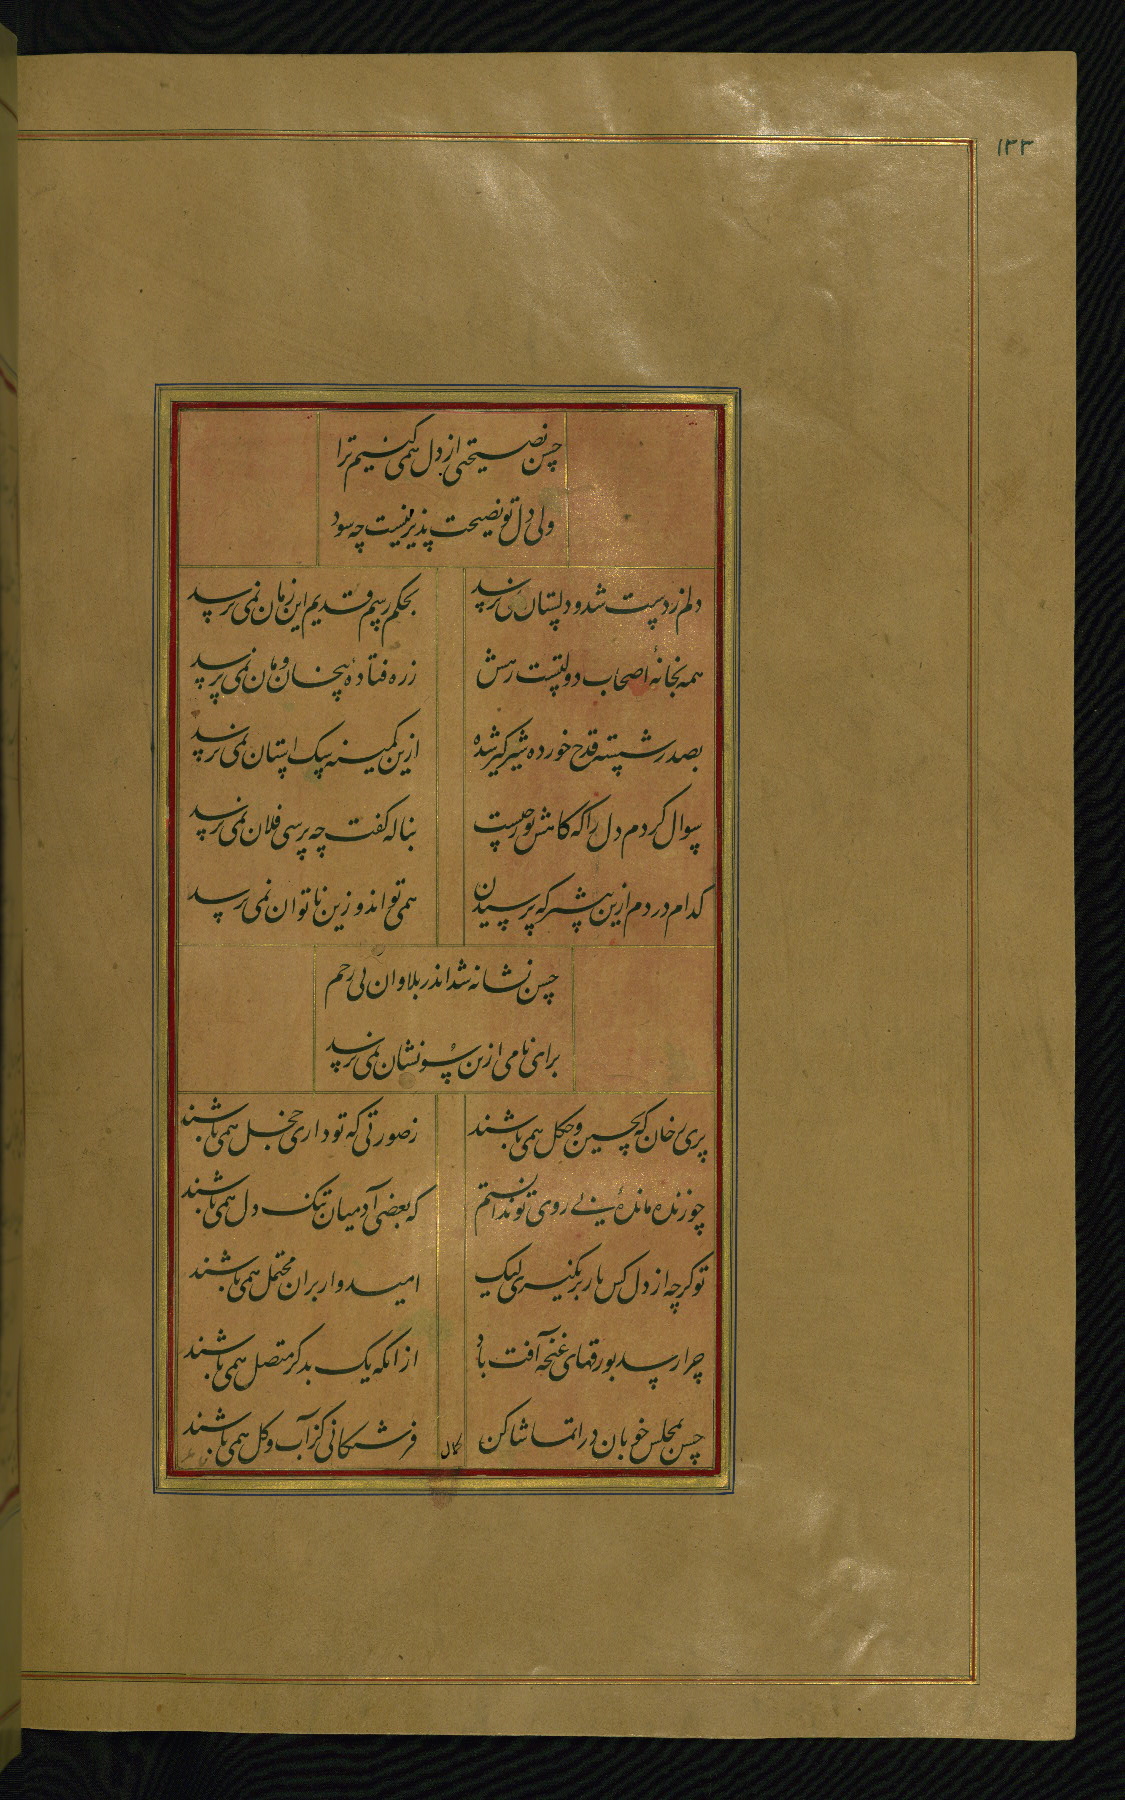 ۱۳۳
حسن نصیحتی از دل همی کنیم ترا
ولی دل تو نصیحت پذیر نیست چه سود
دلم ز دست شد و دلستان نمی پرسد
بحکم رسم قدیم این زمان نمی پرسد
همه بخانهٔ اصحاب دولتست رهش
ز ره فتادهٔ بیخان و مان نمی پرسد
بصدر شسته قدح خورده شیرگیر شده
ازین کمینه سک استان نمی پرسد
سوال کردم دل را که کاهش تو ز چیست
بناله کفت چه پرسی فلان نمی پرسد
کدام دردم ازین بیشتر که پرسیدن
همی تواند و زین ناتوان نمی پرسد
حسن نشانه شد اندر بلا و ان بی رحم
برای نامی ازین سو نشان نمی پرسد
پری رخان که بچین و چکل همی باشند
ز صورتی که تو داری خجل همی باشند
چو زنده ماندهٔ بی روی تو ندانستم
که بعضی آدمیان تنک دل همی باشند
تو کرچه از دل کس بار بر نکیری لیک
امیدوار بران محتمل همی باشند
چرا رسد بورقهای غنچه آفت باد
از انکه یک بدکر متصل همی باشند
حسن بمجلس خوبان در ا تماشا کن
فرشتکانی کز آب و کل همی باشند